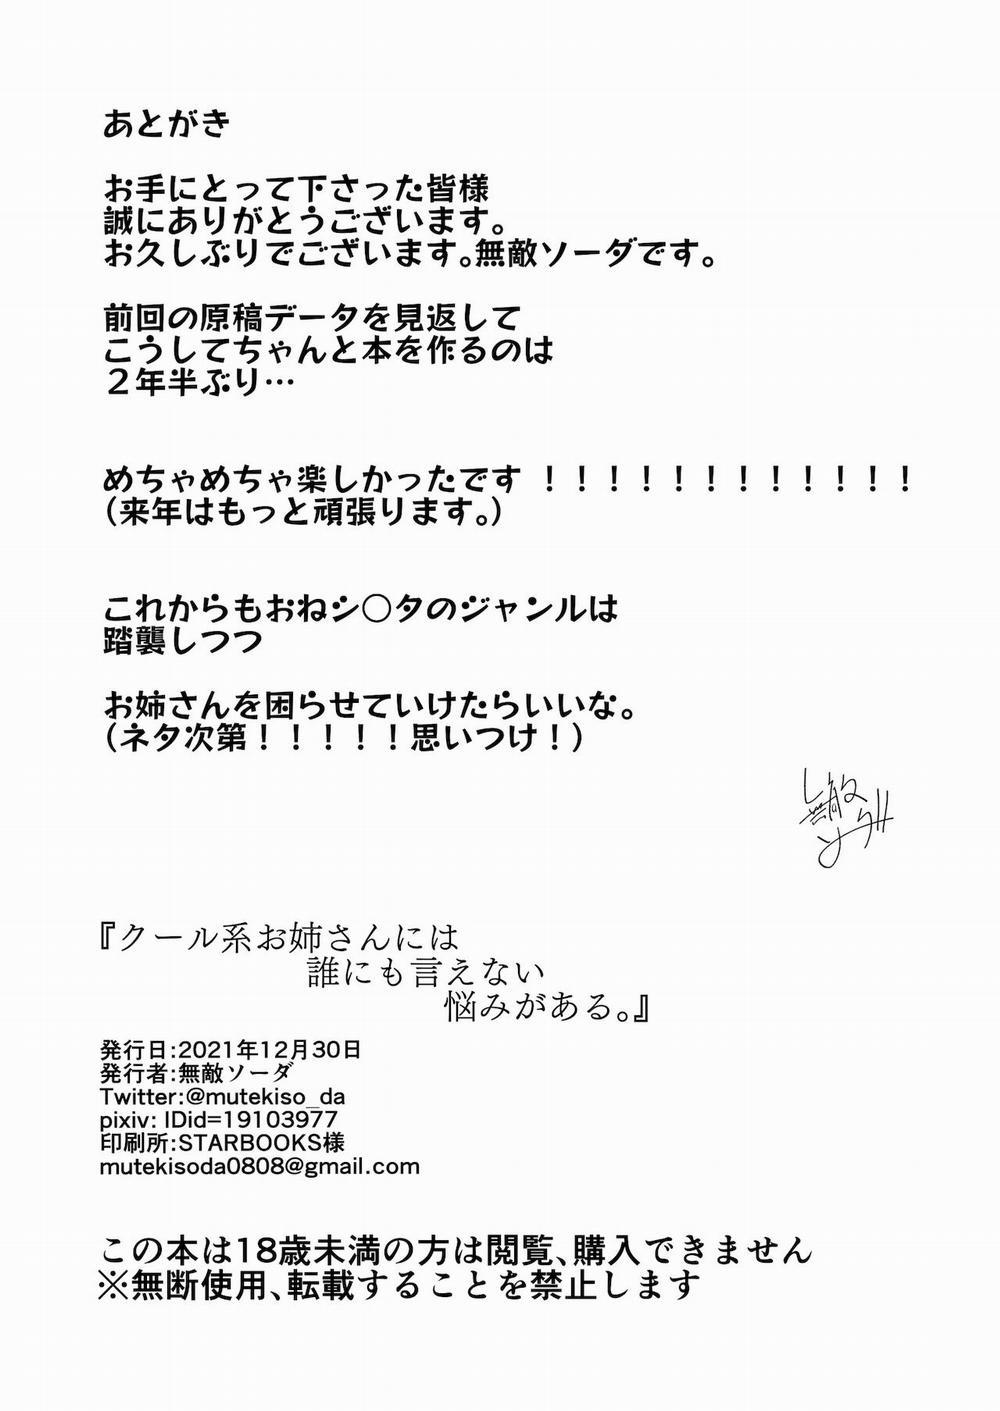 あとがき
お手にとって下さった皆様
誠にありがとうございます。
お久しぶりでございます。無敵ソーダです。
前回の原稿データを見返して
こうしてちゃんと本を作るのは
２年半ぶり…
めちゃめちゃ楽しかったです！！！！！！！！！！！！
（来年はもっと頑張ります。）
これからもおねシ〇タのジャンルは
踏襲しつつ
お姉さんを困らせていけたらいいな。
（ネタ次第！！！！！思いつけ！）
無敵
ソーダ
『クール系お姉さんには
誰にも言えない
悩みがある。』
発行日:2021年12月30日
発行者:無敵ソーダ
Twitter:@mutekiso_da
pixiv: IDid=19103977
印刷所:STARBOOKS様
mutekisoda0808@gmail.com
この本は18歳未満の方は閲覧、購入できません
※無断使用、転載することを禁止します